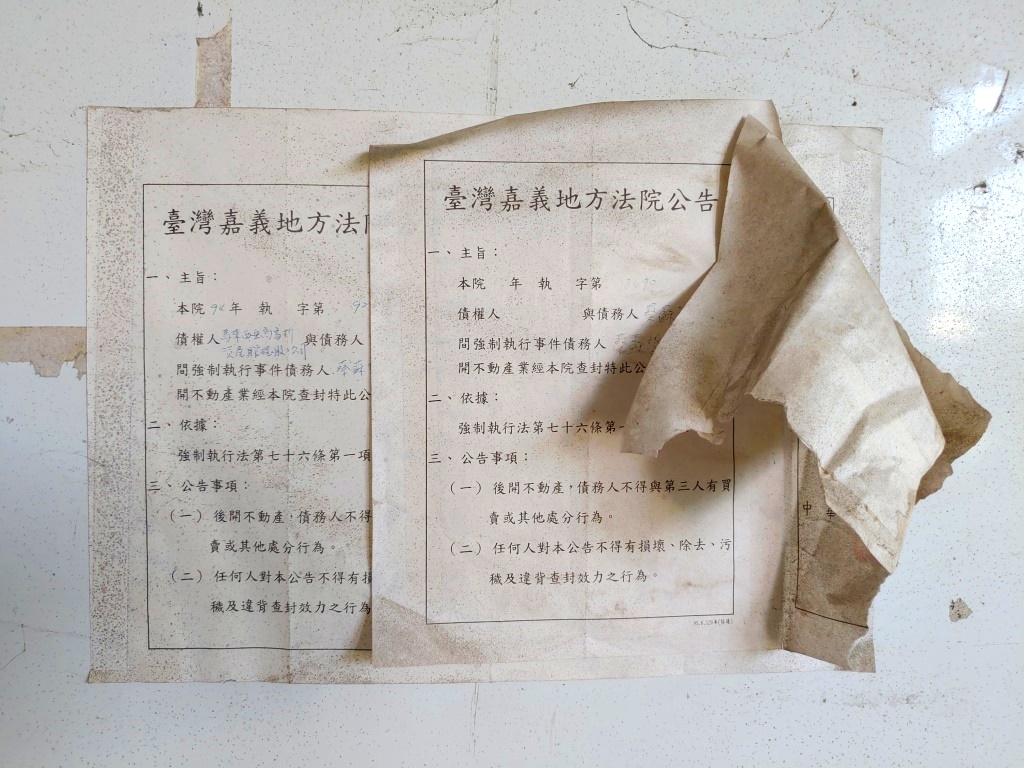 臺灣嘉義地方法
一、主旨：
本院 年 執 字第
債權人 與債務人
間強制執行事件債務人
開不動產業經本院查封特此公
二、依據：
強制執行法第七十六條第一項
三、公告事項：
（一）後開不動產，債務人不得
賣或其他處分行為。
（二）任何人對本公告不得有損
穢及違背查封效力之行為
臺灣嘉義地方法院公告
一、主旨：
本院 年 執 字第
債權人 與債務人
間強制執行事件債務人
開不動產業經本院查封特此公
二、依據：
強制執行法第七十六條第一
三、公告事項：
（一）後開不動產，債務人不得與第三人有買
賣或其他處分行為。
（二）任何人對本公告不得有損壞、除去、污
穢及違背查封效力之行為。
中華